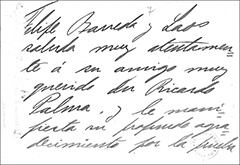 Felipe Barreda y Laos
saluda muy atentamen-
te á su amigo muy
querido don Ricardo
Palma, y le mani-
fiesta su profundo agra-
decimiento por la